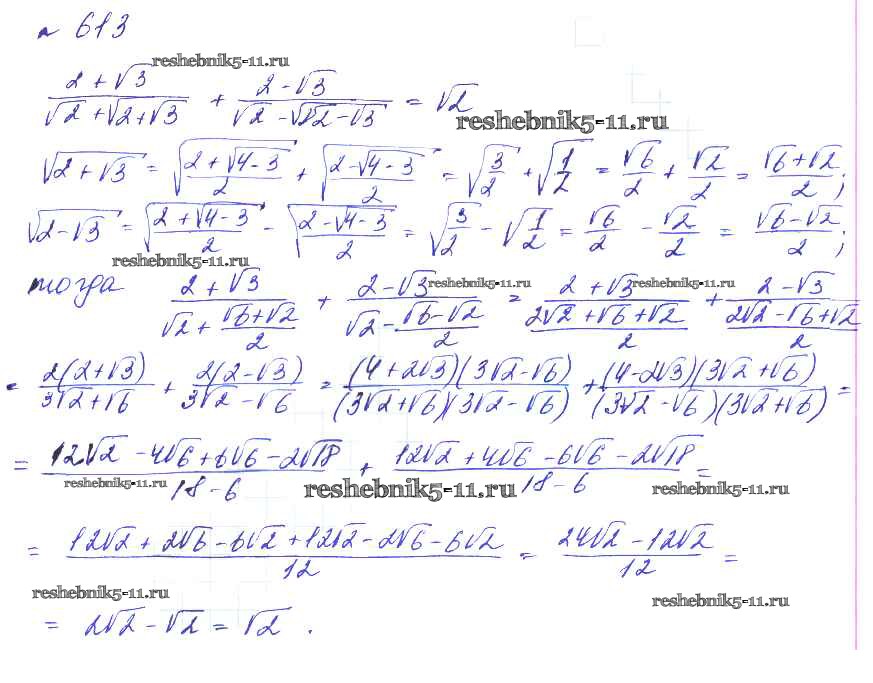 № 613
reshebnik5-11.ru
(2+√3)/(√2+√(2+√3)) + (2-√3)/(√2-√(√2-√3)) = √2
reshebnik5-11.ru
√(2+√3) = √((2+√(4-3))/2) + √((2-√(4-3))/2) = √(3/2) + √(1/2) = √6/2 + √2/2 = (√6+√2)/2;
√(2-√3) = √((2+√(4-3))/2) - √((2-√(4-3))/2) = √(3/2) - √(1/2) = √6/2 - √2/2 = (√6-√2)/2;
reshebnik5-11.ru
тогда (2+√3)/(√2+(√6+√2)/2) + (2-√3)/(√2-(√6-√2)/2) = (2+√3)/((2√2+√6+√2)/2) + (2-√3)/((2√2-√6+√2)/2)
reshebnik5-11.ru reshebnik5-11.ru
= 2(2+√3)/(3√2+√6) + 2(2-√3)/(3√2-√6) = (4+2√3)(3√2-√6)/((3√2+√6)(3√2-√6)) + (4-2√3)(3√2+√6)/((3√2-√6)(3√2+√6)) =
= (12√2-4√6+6√6-2√18)/(18-6) + (12√2+4√6-6√6-2√18)/(18-6) =
reshebnik5-11.ru reshebnik5-11.ru reshebnik5-11.ru
= (12√2+2√6-6√2+12√2-2√6-6√2)/12 = (24√2-12√2)/12 =
reshebnik5-11.ru reshebnik5-11.ru
= 2√2-√2 = √2.